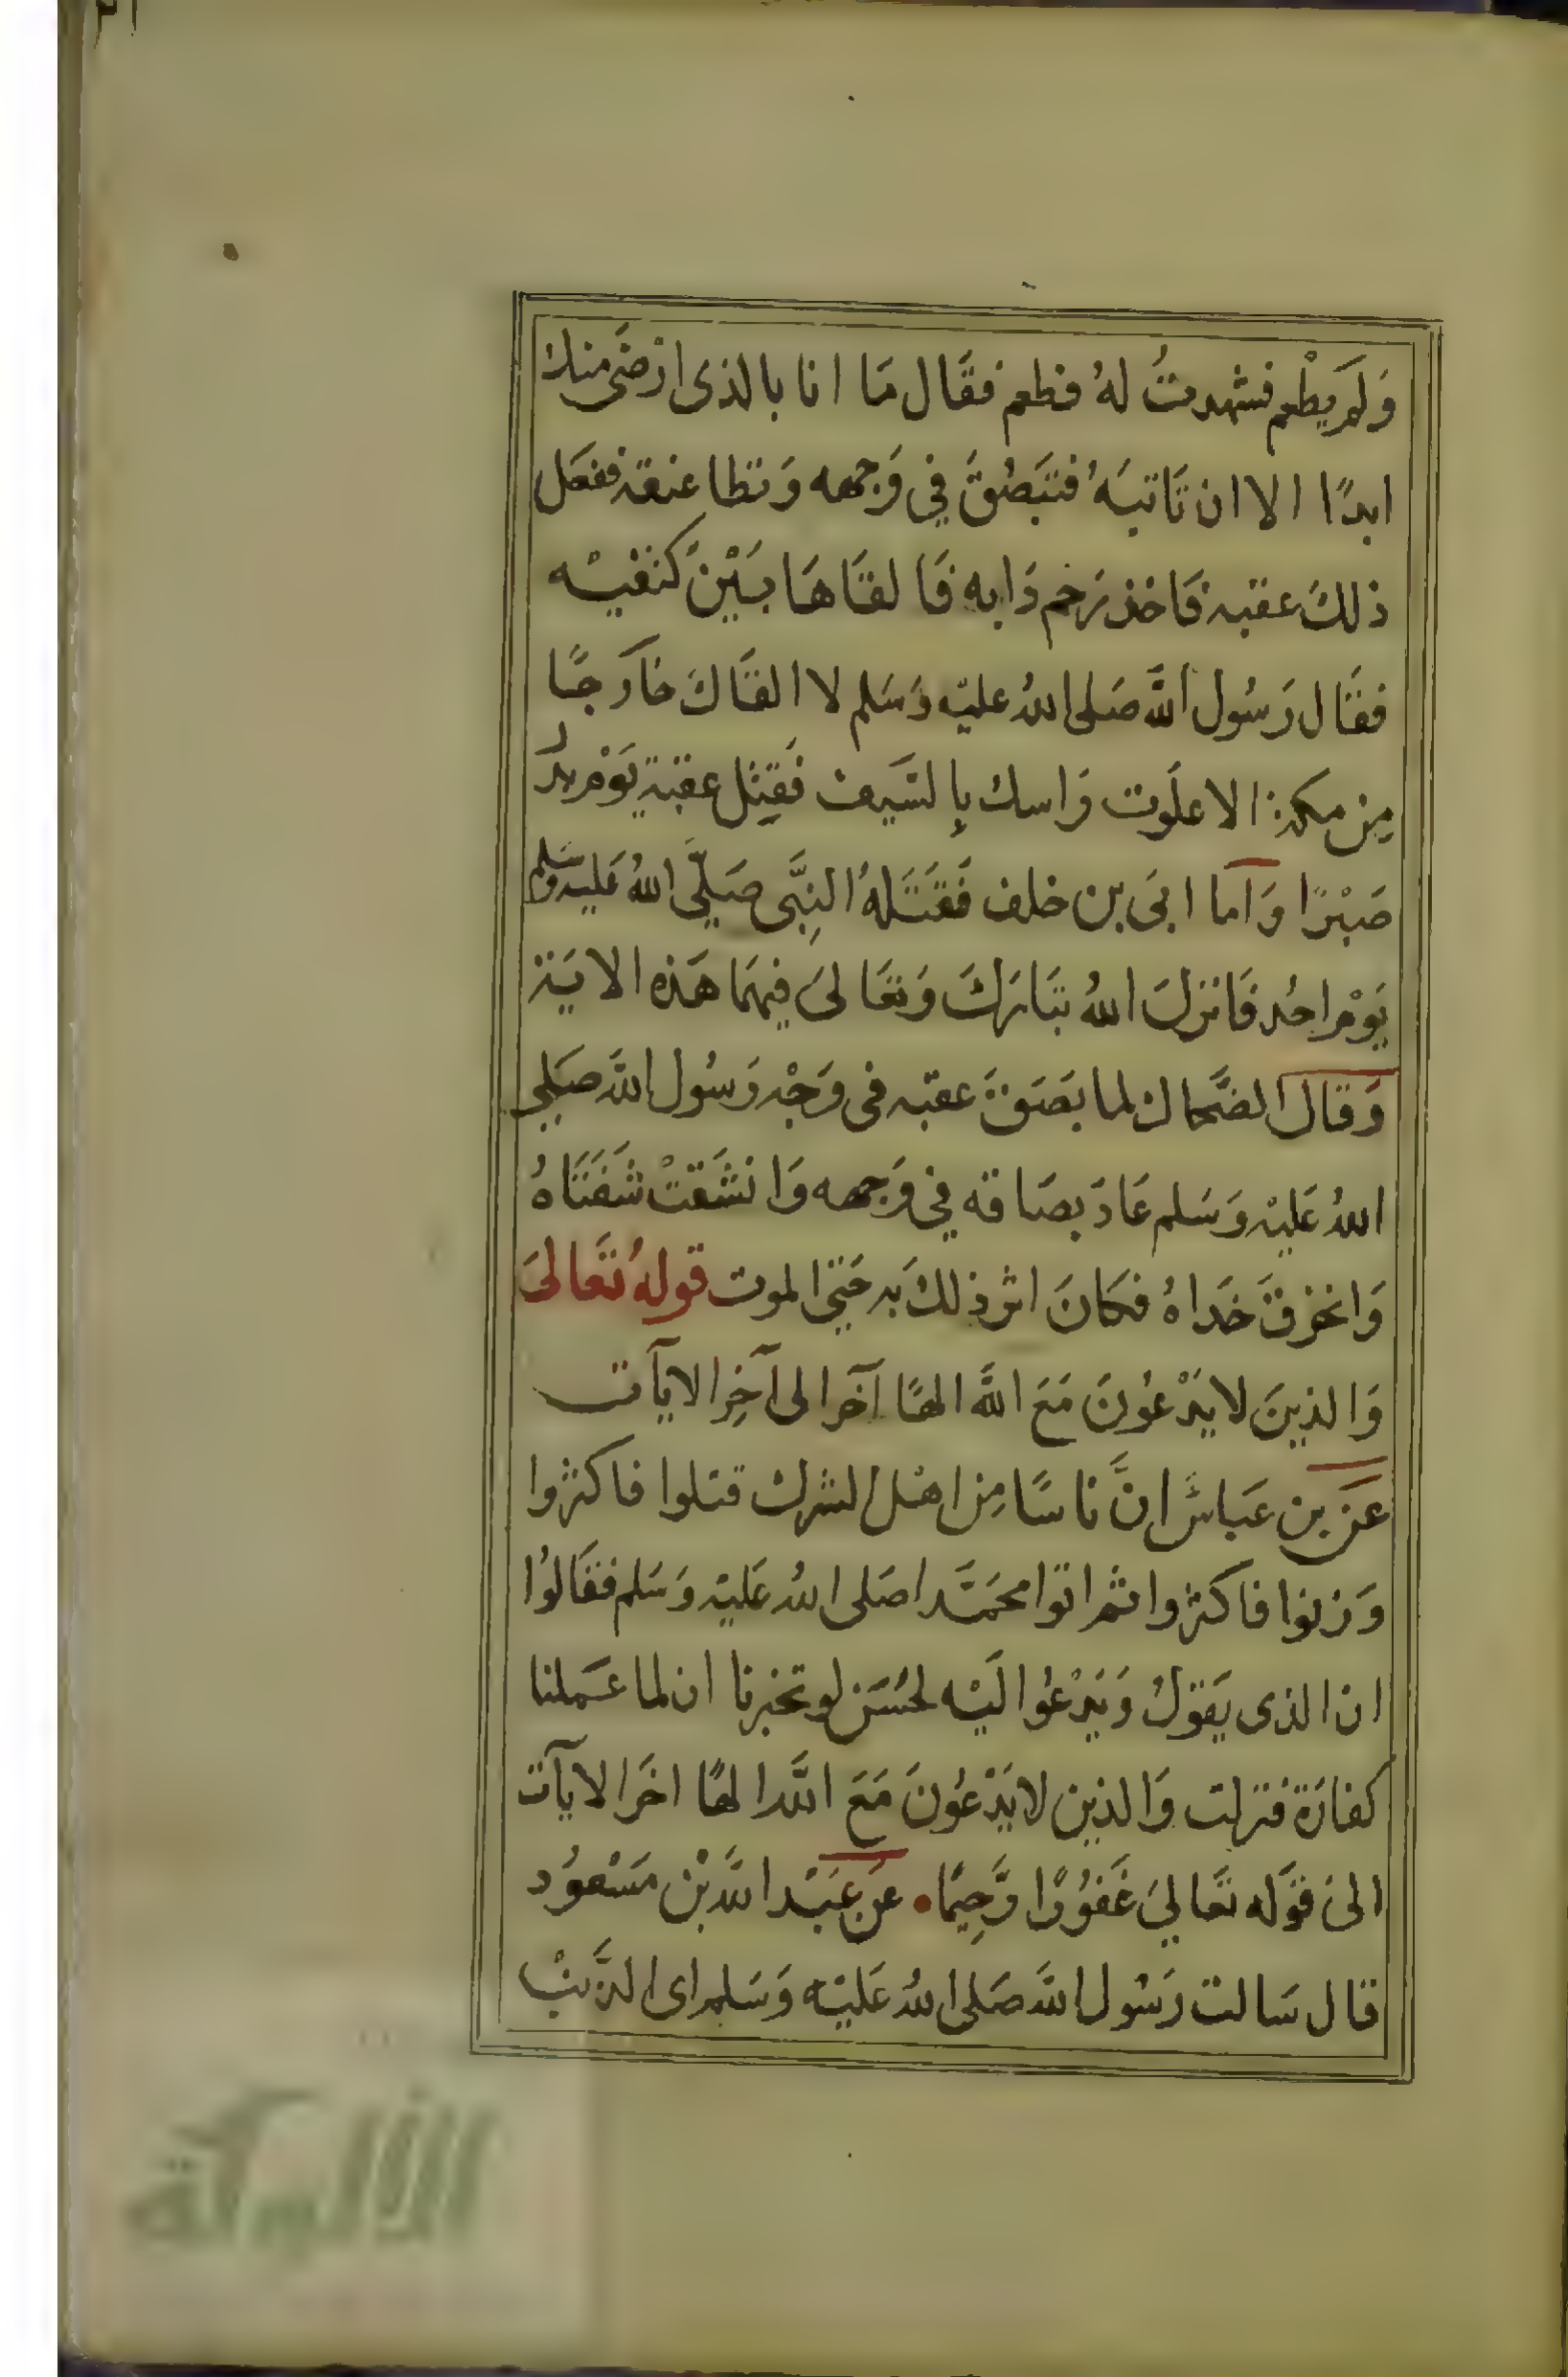 وَلَمْ يطْعم فشهدتُ لهُ فطعم فقَال مَا انا بالذى ارْضَى منك
ابدًا الا ان تَاتيَهُ فتَبَصُقَ فِي وَجهه وَتطا عنقه ففعَل
ذلكَ عقبه فَاخذ رَحم دَابه فَالقَاهَا بَيْنَ كتفَيْه
فقَال رَسُول اللَّه صَلى اللهُ عليْه وَسَلم لا القَاكَ خَارجًا
مِن مكة الا علَوت رَاسك بِالسَّيف فَقتِل عقبَة يَوْم بدرٍ
صَبْرًا وَاَما ابَى بن خلف فَقَتَلهُ النِبَّى صَلَّى اللهُ عَليه وَسَلم
يَوْم احُد فَانزلَ اللهُ تبَارَكَ وَتعَالىَ فيهمَا هَذه الايَة
وَقالَ الضَّحاك لما بصَقَ عقبَه فى وَجْه رَسُول اللَّه صَلى
اللهُ عَليْه وَسَلم عَادَ بصَاقه فِي وَجهه وَانشَقتْ شَفَتَاهُ
وَانحزقَ خَداهُ فكَانَ اثر ذلكَ به حَتي الموت قولهُ تعَالىَ
وَالذينَ لا يَدْعُونَ مَعَ اللَّه الهًا آخَر الى آخِر الايآت
عَن بن عَباسٍ انَّ ناسًا مِن اهْل الشرك قتلوا فاكثرُوا
وَزنوا فاكثروا ثم اتوا محمَّدا صَلى اللهُ عَليْه وَسَلم فقَالوُا
ان الذى يَقولُ وَيَدْعُوا الَيْه لحُسَن لو تخبرنا ان لما عَملنا
كفارَة فنزلت وَالذين لا يَدْعُونَ مَعَ اللَّه الهًا اخَر الايآت
الىَ قوَله تعَالىَ غَفوُرًا رَّحِيمًا. عَن عَبْد اللَّه بْن مَسْعوُد
قال سَالت رَسُول اللَّه صَلى اللهُ عَليْه وَسَلم اى الذَّنبْ
الألوكة